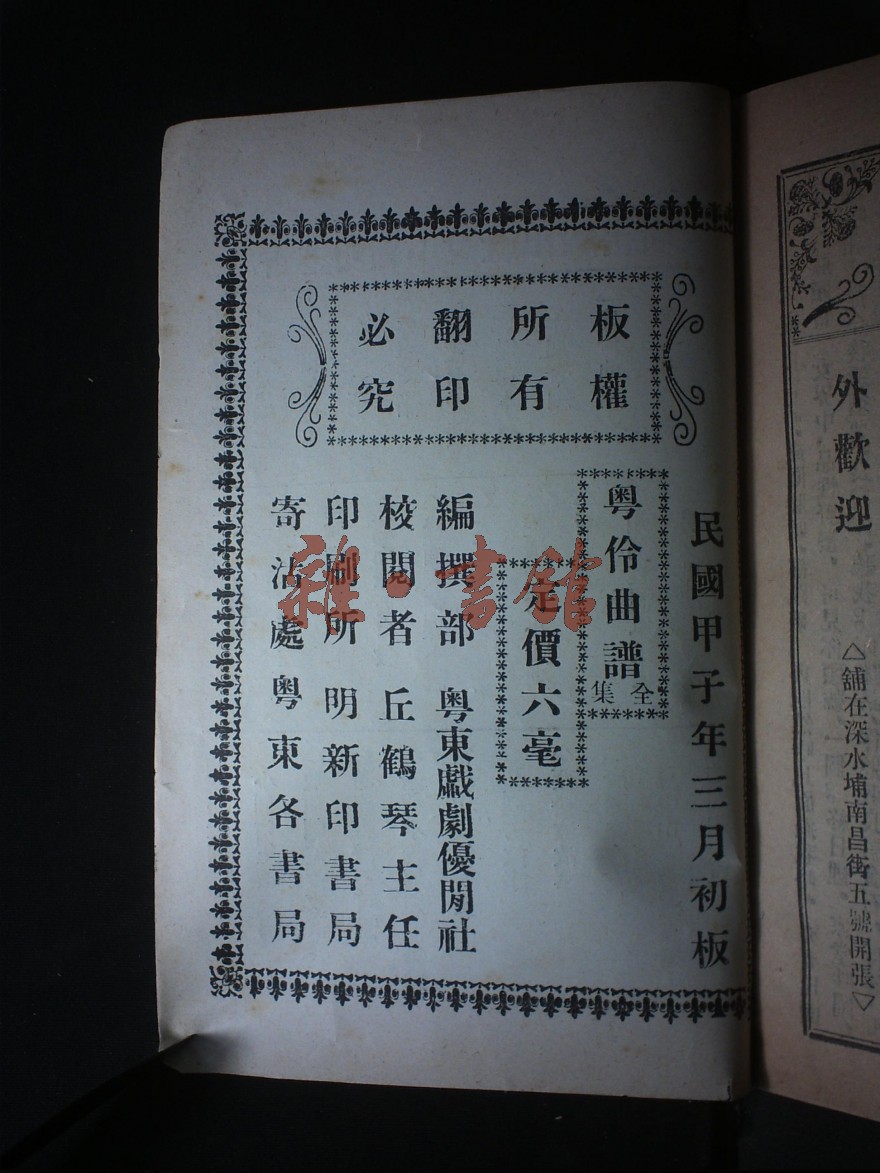 外歡迎
△舖在深水埔南昌街五號開張▽
板權
所有
翻印
必究
民國甲子年三月初板
粵伶曲譜
全集
定價六毫
編撰部 粵東戲劇優閒社
校閱者 丘鶴琴主任
印刷所 明新印書局
寄沽處 粵東各書局
雜·書館